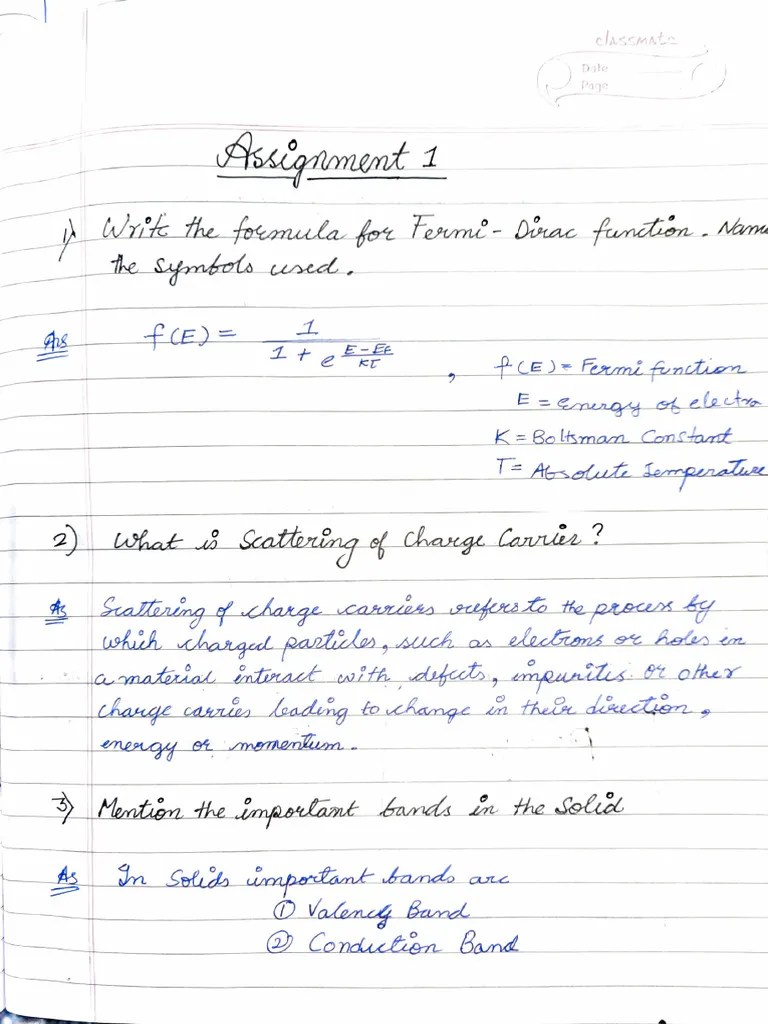 classmate
Date
Page
Assignment 1
1) Write the formula for Fermi - Dirac function. Nam
the symbols used.
Ans f(E) = 1 / 1 + e^(E-EF/KT) ,
f(E) = Fermi function
E = Energy of electro
K = Boltsman Constant
T = Absolute Temperature
2) What is Scattering of Charge Carrier ?
As Scattering of charge carriers refers to the process by
which charged particles, such as electrons or holes in
a material interact with defects, impurites or other
charge carries leading to change in their direction,
energy or momentum.
3) Mention the important bands in the Solid
As In Solids important bands are
① Valency Band
② Conduction Band